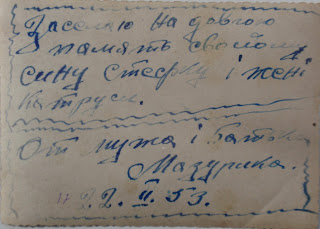 Заселаю на довгою
память свойому
сину Стефку і жені
Катрусі.
От мужа і батька
Мазурика.
22.II.53.